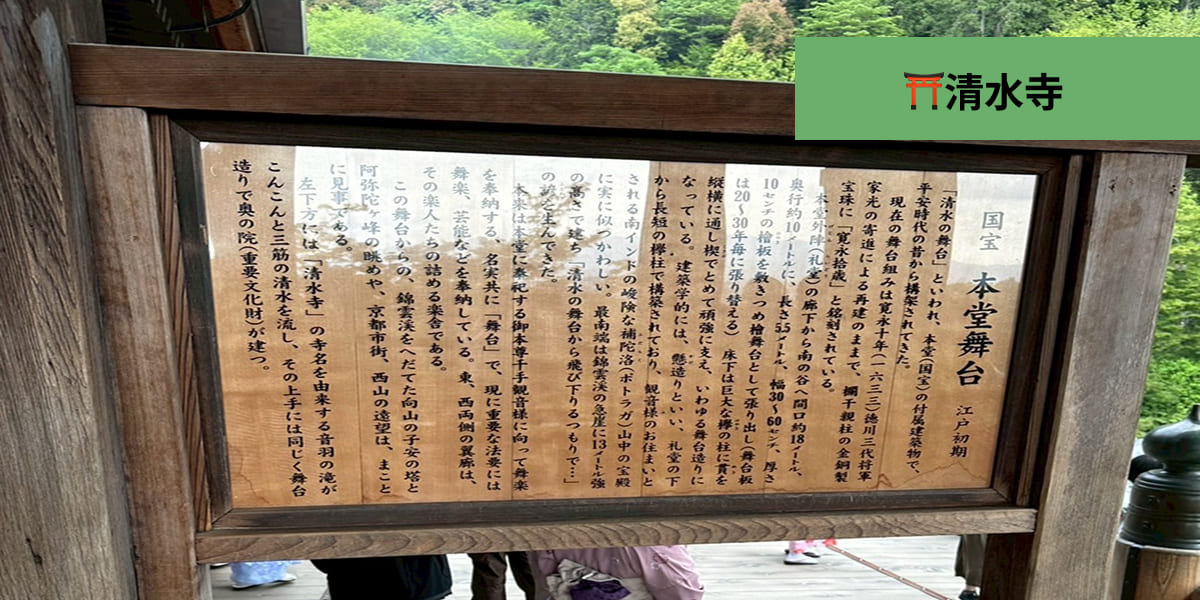 ⛩️清水寺
国宝 本堂舞台 江戸初期
「清水の舞台」といわれ、本堂(国宝)の付属建築物で、
平安時代の昔から構架されてきた。
現在の舞台組みは寛永十年(一六三三)徳川三代将軍
家光の寄進による再建のままで、欄干親柱の金銅製
宝珠に「寛永拾歳」と銘刻されている。
本堂外陣(礼堂)の廊下から南の谷へ間口約18メートル、
奥行約10メートルに、長さ5.5メートル、幅30〜60センチ、厚さ
10センチの檜板を敷きつめ檜舞台として張り出し(舞台板
は20〜30年毎に張り替える) 床下は巨大な欅の柱に貫を
縦横に通し楔でとめて頑強に支え、いわゆる舞台造りに
なっている。建築学的には、懸造りといい、礼堂の下
から長短の欅柱で構築されており、観音様のお住まいと
される南インドの峻険な補陀洛(ポトラガ)山中の宝殿
に実に似つかわしい。最南端は錦雲渓の急崖に13メートル強
の高さで建ち「清水の舞台から飛び下りるつもりで…」
の諺を生んできた。
本来は本堂に奉祀する御本尊千手観音様に向って舞楽
を奉納する、名実共に「舞台」で、現に重要な法要には
舞楽、芸能などを奉納している。東、西両側の翼廊は、
その楽人たちの詰める楽舎である。
この舞台からの、錦雲渓をへだてた向山の子安の塔と
阿弥陀ヶ峰の眺めや、京都市街、西山の遠望は、まこと
に見事である。
左下方には「清水寺」の寺名を由来する音羽の滝が
こんこんと三筋の清水を流し、その上手には同じく舞台
造りで奥の院(重要文化財)が建つ。